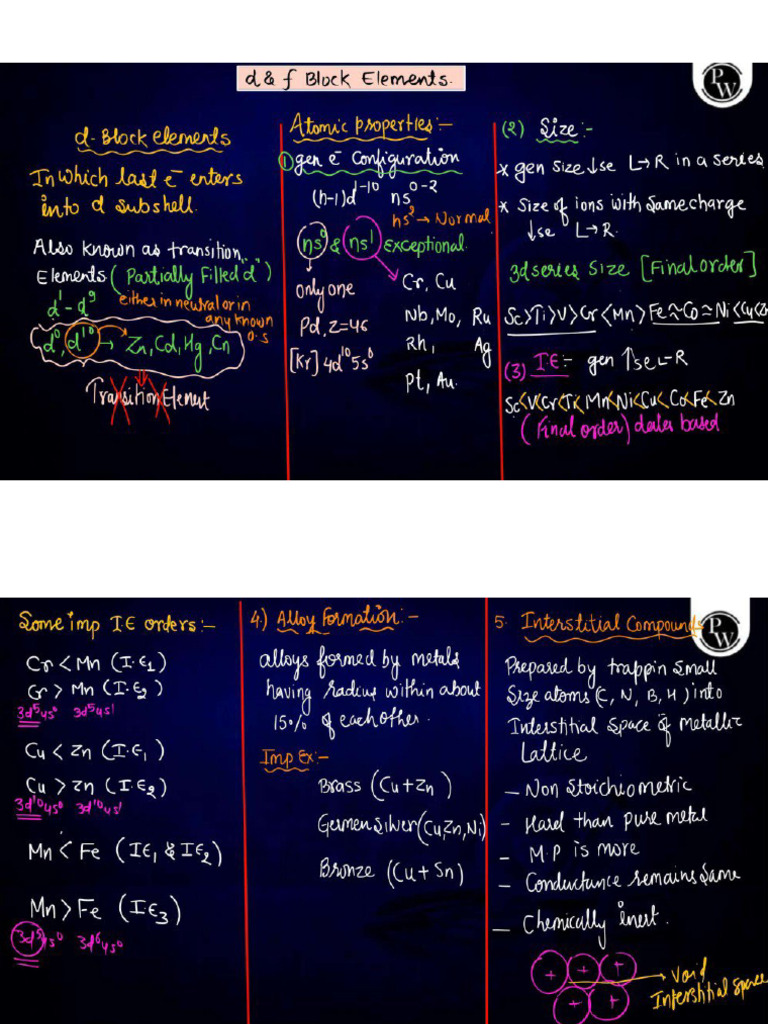 d & f Block Elements.
PW
d-Block elements
In which last e⁻ enters
into d subshell.
Also known as transition
Elements (Partially Filled "d")
d¹ - d⁹ either in neutral or in
any known
o.s
d⁰, d¹⁰ → Zn, Cd, Hg, Cn
Transition Element
Atomic properties:-
① gen e⁻ Configuration
(n-1)d¹⁻¹⁰ ns⁰⁻²
ns² → Normal
ns⁰ & ns¹ Exceptional
only one
Pd, Z=46
[Kr] 4d¹⁰5s⁰
Cr, Cu
Nb, Mo, Ru
Rh, Ag
Pt, Au.
(2) Size:-
* gen size ↓se L→R in a series
* Size of ions with same charge
↓se L→R.
3d series size [Final order]
Sc>Ti>V>Cr<Mn>Fe≈Co≈Ni<Cu<Zn
(3) I.E:- gen ↑se L-R
Sc<V<Cr<Ti<Mn<Ni<Cu<Co<Fe<Zn
(Final order) data based
Some imp IE orders:-
Cr < Mn (I.E₁)
Cr > Mn (I.E₂)
3d⁵4s⁰ 3d⁵4s¹
Cu < Zn (I.E₁)
Cu > Zn (I.E₂)
3d¹⁰4s⁰ 3d¹⁰4s¹
Mn < Fe (IE₁ & IE₂)
Mn > Fe (IE₃)
3d⁵4s⁰ 3d⁶4s⁰
4.) Alloy Formation:-
alloys formed by metals
having radius within about
15% of each other.
Imp Ex:-
Brass (Cu+Zn)
Germen Silver (Cu,Zn,Ni)
Bronze (Cu+Sn)
5. Interstitial Compounds
PW
Prepared by trappin small
Size atoms (C, N, B, H) into
Interstitial Space of Metallic
Lattice
- Non Stoichiometric
- Hard than pure metal
- M.P is more
- Conductance remains same
- Chemically inert.
+ + +
+ +
→ Void
Interstitial space